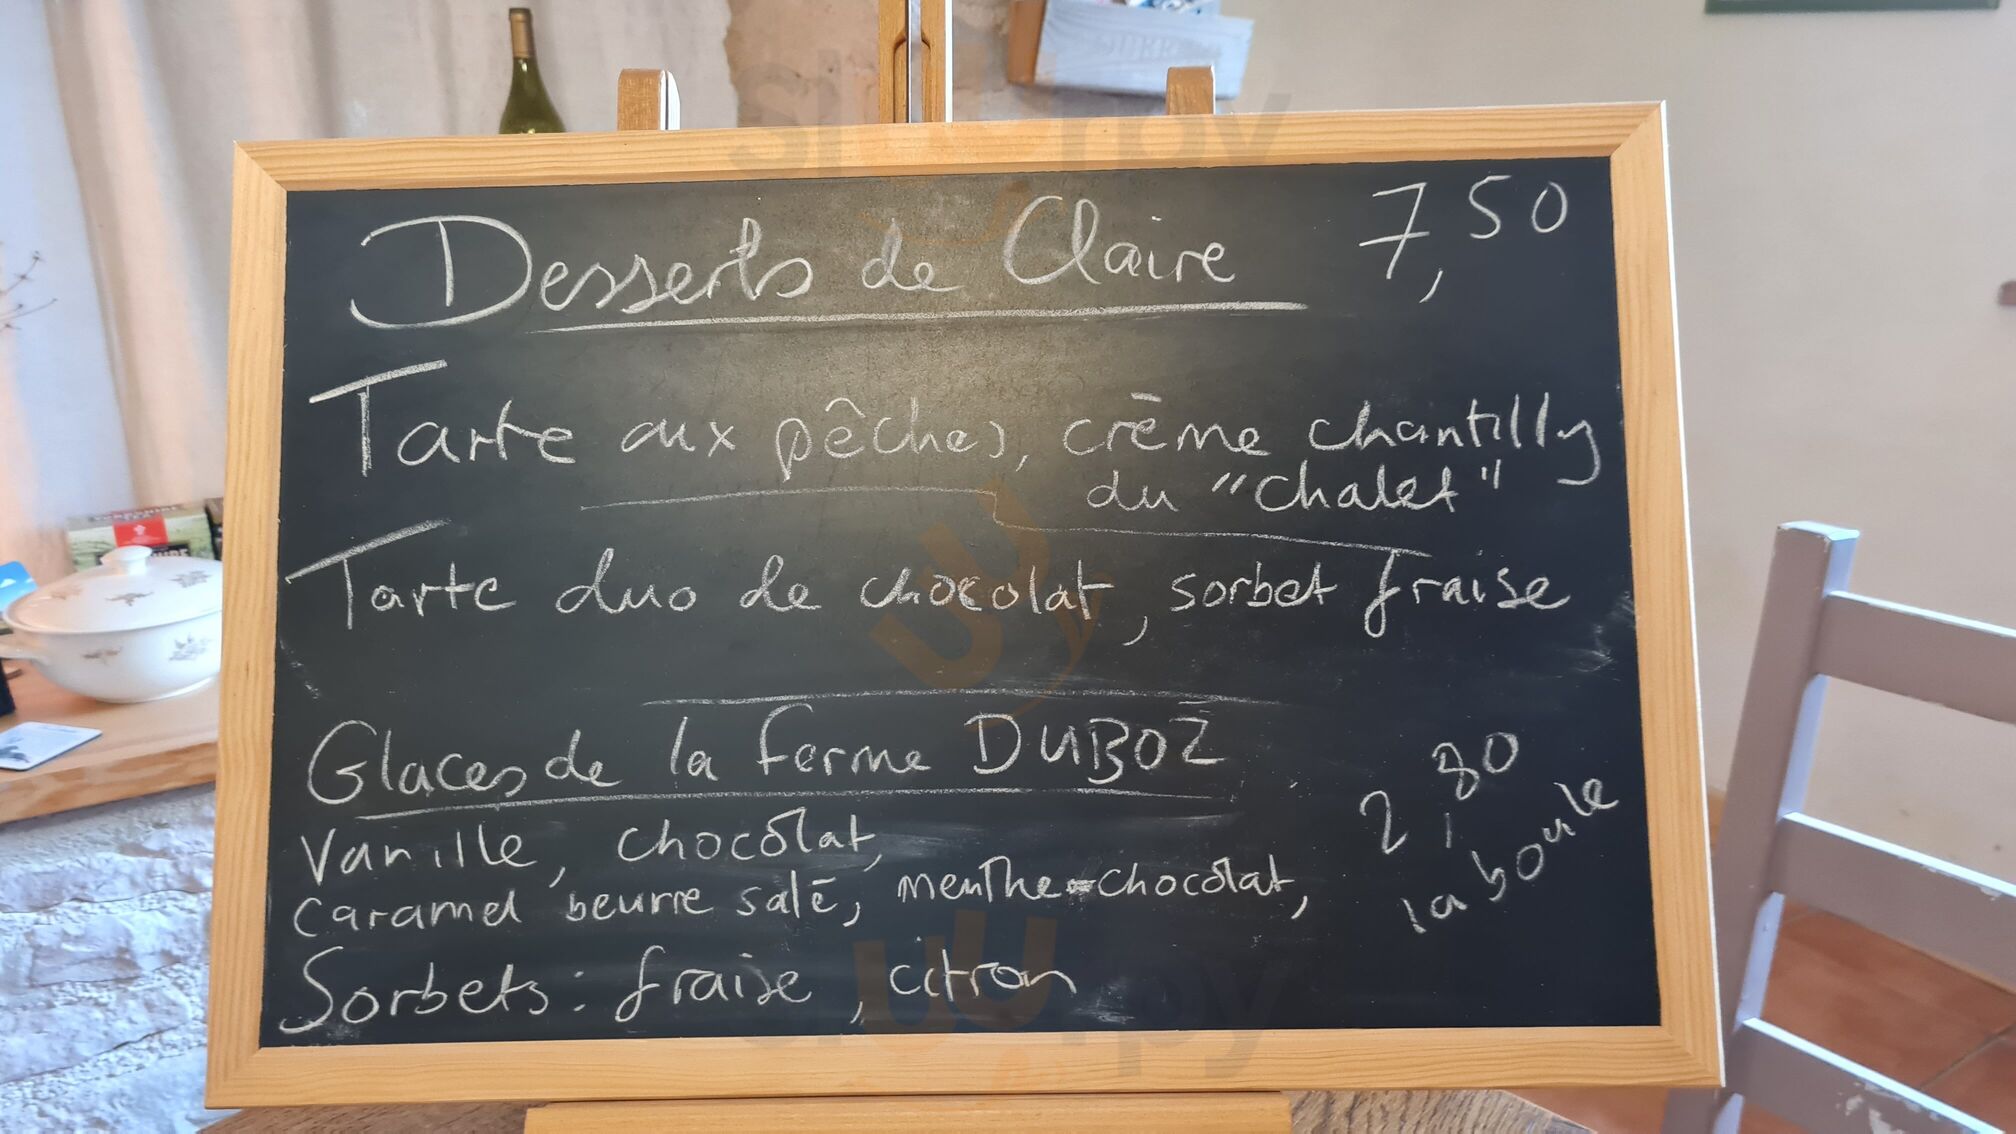 Desserts de Claire 7,50
Tarte aux pêches, crème chantilly
du "chalet"
Tarte duo de chocolat, sorbet fraise
Glaces de la ferme DUBOZ
2,80
la boule
Vanille, chocolat,
caramel beurre salé, menthe-chocolat,
Sorbets : fraise, citron